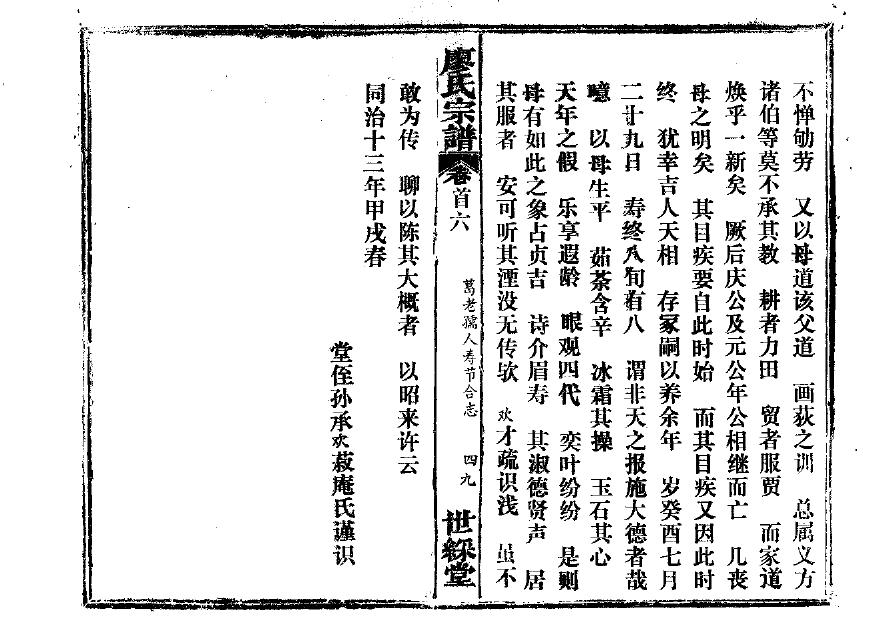 不惮劬劳　又以母道该父道　画荻之训　总属义方
诸伯等莫不承其教　耕者力田　贸者服贾　而家道
焕乎一新矣　厥后庆公及元公年公相继而亡　几丧
母之明矣　其目疾要自此时始　而其目疾又因此时
终　犹幸吉人天相　存冢嗣以养余年　岁癸酉七月
二十九日　寿终八旬有八　谓非天之报施大德者哉
噫　以母生平　茹荼含辛　冰霜其操　玉石其心
天年之假　乐享遐龄　眼观四代　奕叶纷纷　是则
母有如此之象占贞吉　诗介眉寿　其淑德贤声　居
其服者　安可听其湮没无传欤　欢才疏识浅　虽不
廖氏宗譜　卷首六　葛老孺人寿节合志　四九　世綵堂
敢为传　聊以陈其大概者　以昭来许云
同治十三年甲戌春
堂侄孙承欢菽庵氏谨识